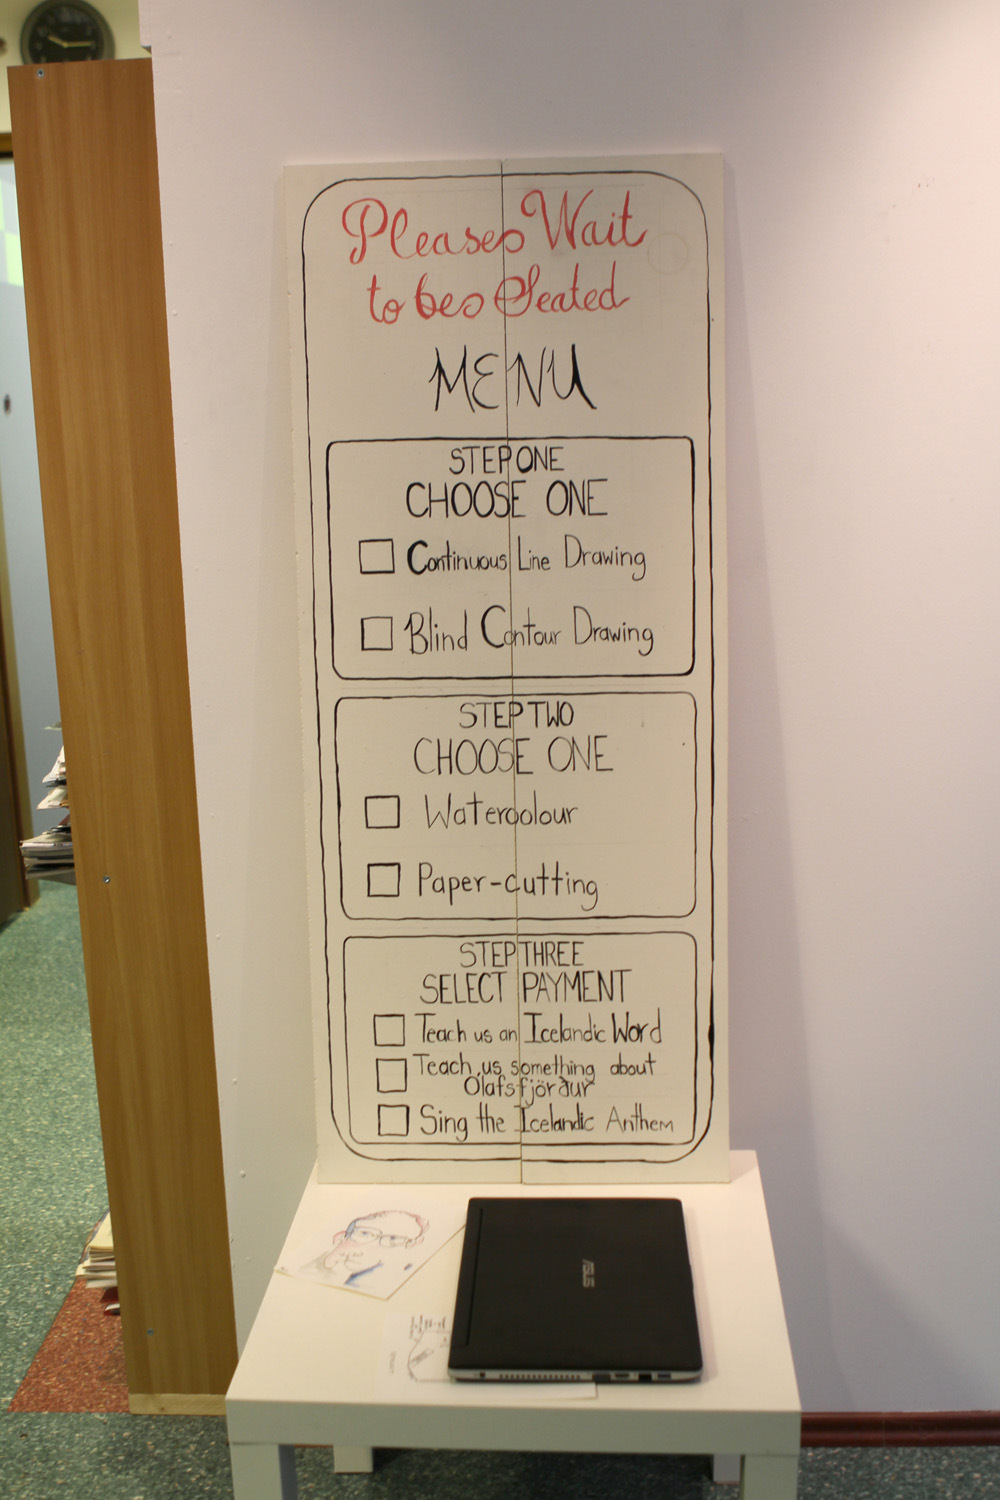 Please Wait
to be Seated
MENU
STEP ONE
CHOOSE ONE
Continuous Line Drawing
Blind Contour Drawing
STEP TWO
CHOOSE ONE
Watercolour
Paper-cutting
STEP THREE
SELECT PAYMENT
Teach us an Icelandic Word
Teach us something about
Ólafsfjörður
Sing the Icelandic Anthem
ASUS